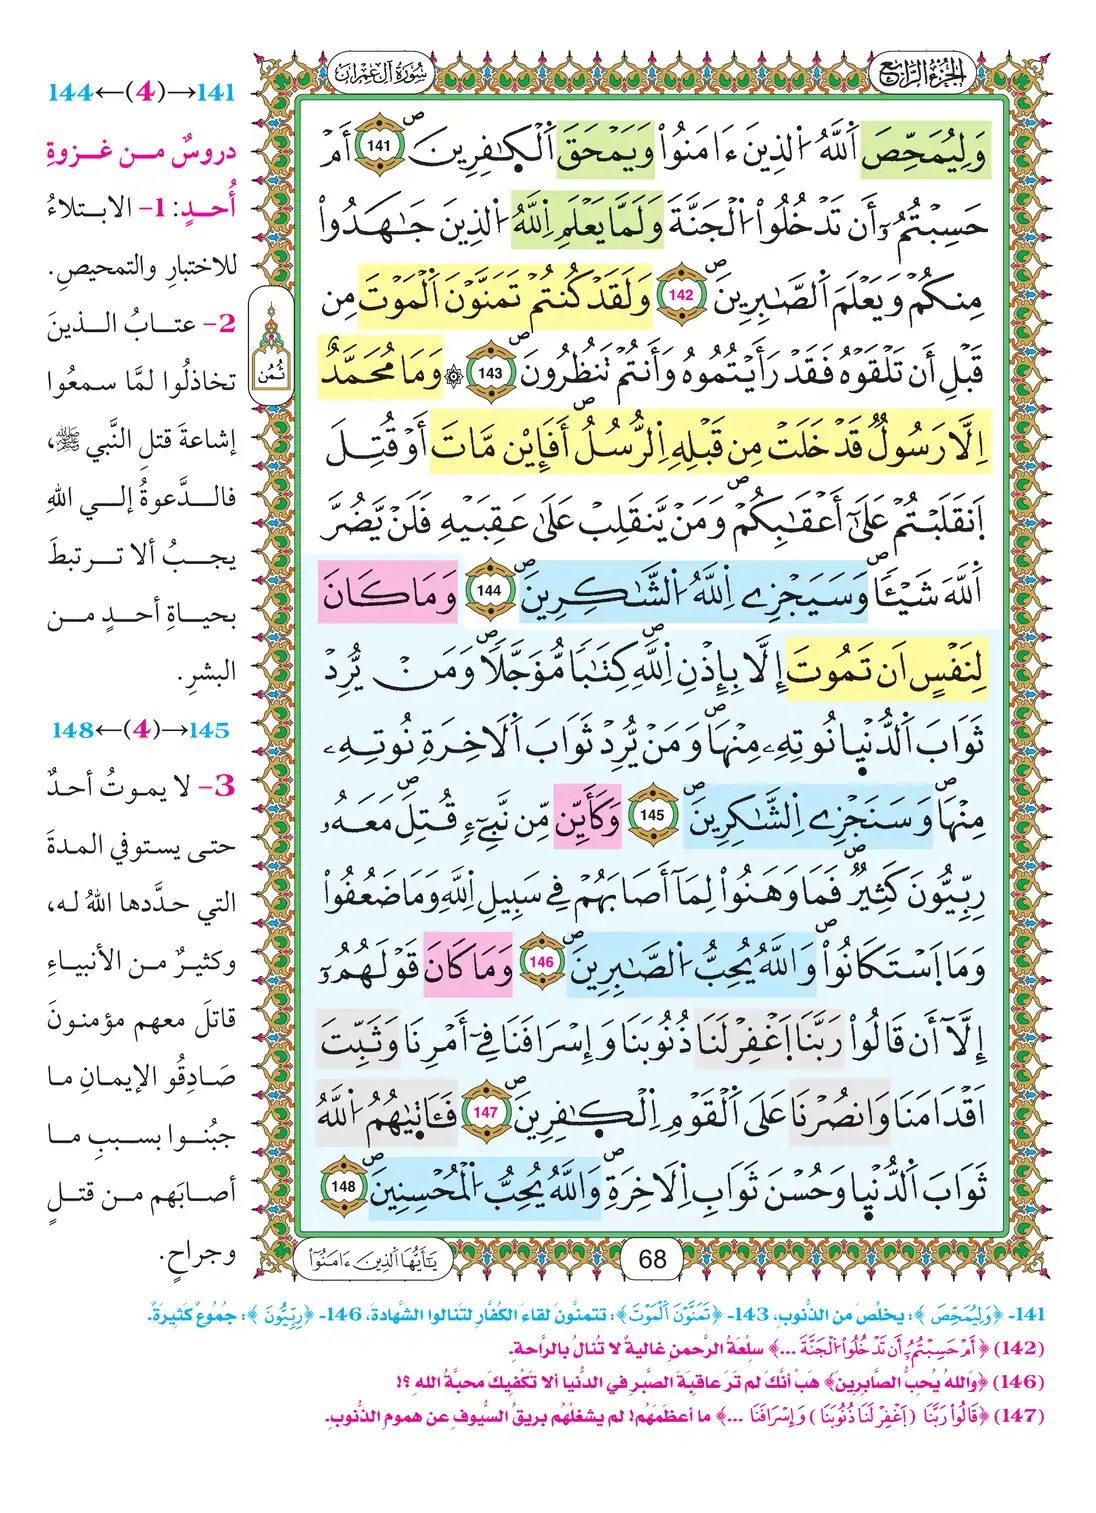 الجزء الرابع
سورة آل عمران
وَلِيُمَحِّصَ اَللَّهُ اُلذِينَ ءَامَنُواْ وَيَمْحَقَ اَلْكٰفِرِينَۖ 141 أَمْ
حَسِبْتُمُۥٓ أَن تَدْخُلُواْ اُلْجَنَّةَ وَلَمَّا يَعْلَمِ اِللَّهُ اُلذِينَ جَٰهَدُواْ
مِنكُمْ وَيَعْلَمَ اَلصَّٰبِرِينَۖ 142 وَلَقَدْ كُنتُمْ تَمَنَّوْنَ اَلْمَوْتَ مِن
قَبْلِ أَن تَلْقَوْهُ فَقَدْ رَأَيْتُمُوهُ وَأَنتُمْ تَنظُرُونَۖ 143 ۞ وَمَا مُحَمَّدٌ
اِلَّا رَسُولٌ قَدْ خَلَتْ مِن قَبْلِهِ اِلرُّسُلُۖ أَفَإِيْن مَّاتَ أَوْ قُتِلَ
اَنقَلَبْتُمْ عَلَىٰٓ أَعْقَٰبِكُمْۖ وَمَنْ يَّنقَلِبْ عَلَىٰ عَقِبَيْهِ فَلَنْ يَّضُرَّ
اَللَّهَ شَيْـٔاًۖ وَسَيَجْزِي اِللَّهُ اُلشَّٰكِرِينَۖ 144 وَمَا كَانَ
لِنَفْسٍ اَن تَمُوتَ إِلَّا بِإِذْنِ اِللَّهِۖ كِتَٰباً مُّؤَجَّلاًۖ وَمَنْ يُّرِدْ
ثَوَابَ اَلدُّنْيا نُوتِهِۦ مِنْهَاۖ وَمَنْ يُّرِدْ ثَوَابَ اَلَاخِرَةِ نُوتِهِۦ
مِنْهَاۖ وَسَنَجْزِي اِلشَّٰكِرِينَۖ 145 وَكَأَيِّن مِّن نَّبِيٓءٍ قُتِلَۖ مَعَهُۥ
رِبِّيُّونَ كَثِيرٌۖ فَمَا وَهَنُواْ لِمَآ أَصَابَهُمْ فِي سَبِيلِ اِللَّهِ وَمَا ضَعُفُواْ
وَمَا اَسْتَكَانُواْۖ وَاللَّهُ يُحِبُّ اُلصَّٰبِرِينَۖ 146 وَمَا كَانَ قَوْلَهُمُۥٓ
إِلَّآ أَن قَالُواْ رَبَّنَا اَغْفِرْ لَنَا ذُنُوبَنَا وَإِسْرَافَنَا فِيٓ أَمْرِنَا وَثَبِّتَ
اَقْدَامَنَا وَانصُرْنَا عَلَى اَلْقَوْمِ اِلْكٰفِرِينَۖ 147 فَـَٔاتَىٰهُمُ اُللَّهُ
ثَوَابَ اَلدُّنْيا وَحُسْنَ ثَوَابِ اِلَاخِرَةِۖ وَاللَّهُ يُحِبُّ اُلْمُحْسِنِينَۖ 148
68
يَٰٓأَيُّهَا اَلذِينَ ءَامَنُوٓاْ
ثُمُن
141→(4)←144
دروسٌ من غزوةِ
أُحدٍ: 1- الابتلاءُ
للاختبارِ والتمحيصِ.
2- عتابُ الذينَ
تخاذلُوا لمَّا سمعُوا
إشاعةَ قتلِ النَّبي ﷺ،
فالدَّعوةُ إلى اللهِ
يجبُ ألا ترتبطَ
بحياةِ أحدٍ من
البشرِ.
145→(4)←148
3- لا يموتُ أحدٌ
حتى يستوفي المدةَ
التي حدَّدها اللهُ له،
وكثيرٌ من الأنبياءِ
قاتلَ معهم مؤمنونَ
صَادِقُو الإيمانِ ما
جبُنوا بسببِ ما
أصابَهم من قتلٍ
وجراحٍ.
141- ﴿وَلِيُمَحِّصَ﴾: يخلِّصَ من الذُّنوبِ، 143- ﴿تَمَنَّوْنَ اَلْمَوْتَ﴾: تتمنَّونَ لقاءَ الكُفَّارِ لتَنالوا الشَّهادةَ، 146- ﴿رِبِّيُّونَ﴾: جُمُوعٌ كَثِيرَةٌ.
(142) ﴿أَمْ حَسِبْتُمُۥٓ أَن تَدْخُلُواْ اُلْجَنَّةَ ...﴾ سلْعَةُ الرَّحمنِ غاليةٌ لا تُنالُ بالرَّاحةِ.
(146) ﴿وَاللهُ يُحِبُّ الصَّابِرِينَ﴾ هَبْ أنَّكَ لم تَرَ عاقبَةَ الصَّبرِ في الدُّنيا ألا تَكْفيكَ محبَّةُ اللهِ ؟!
(147) ﴿قَالُواْ رَبَّنَا (اَغْفِرْ لَنَا ذُنُوبَنَا) وَإِسْرَافَنَا ...﴾ ما أعظَمَهُم! لم يشغلْهُم بريقُ السُّيوفِ عن همومِ الذُّنوبِ.